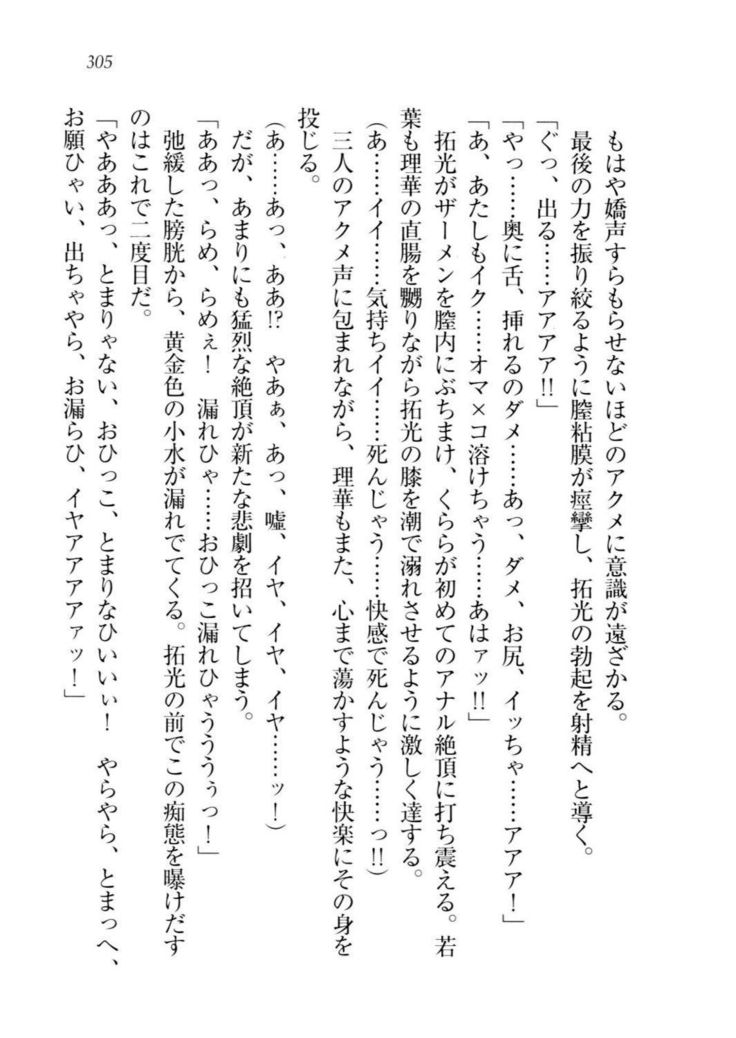 305
もはや嬌声すらもらせないほどのアクメに意識が遠ざかる。
最後の力を振り絞るように膣粘膜が痙攣し、拓光の勃起を射精へと導く。
「ぐっ、出る……アアアア!!」
「やっ……奥に舌、挿れるのダメ……あっ、ダメ、お尻、イッちゃ……アアア！」
「あ、あたしもイク……オマ×コ溶けちゃう……あはァッ!!」
拓光がザーメンを膣内にぶちまけ、くららが初めてのアナル絶頂に打ち震える。若
葉も理華の直腸を嬲りながら拓光の膝を潮で溺れさせるように激しく達する。
（あ……イイ……気持ちイイ……死んじゃう……快感で死んじゃう……っ!!）
三人のアクメ声に包まれながら、理華もまた、心まで蕩かすような快楽にその身を
投じる。
（あ……あっ、ああ!?　やあぁ、あっ、嘘、イヤ、イヤ、イヤ……ッ！）
だが、あまりにも猛烈な絶頂が新たな悲劇を招いてしまう。
「ああっ、らめ、らめぇ！　漏れひゃ……おひっこ漏れひゃうううぅっ！」
弛緩した膀胱から、黄金色の小水が漏れでてくる。拓光の前でこの痴態を曝けだす
のはこれで二度目だ。
「やあああっ、とまりゃない、おひっこ、とまりなひいいぃ！　やらやら、とまっへ、
お願ひゃい、出ちゃやら、お漏らひ、イヤアアアアァッ！」